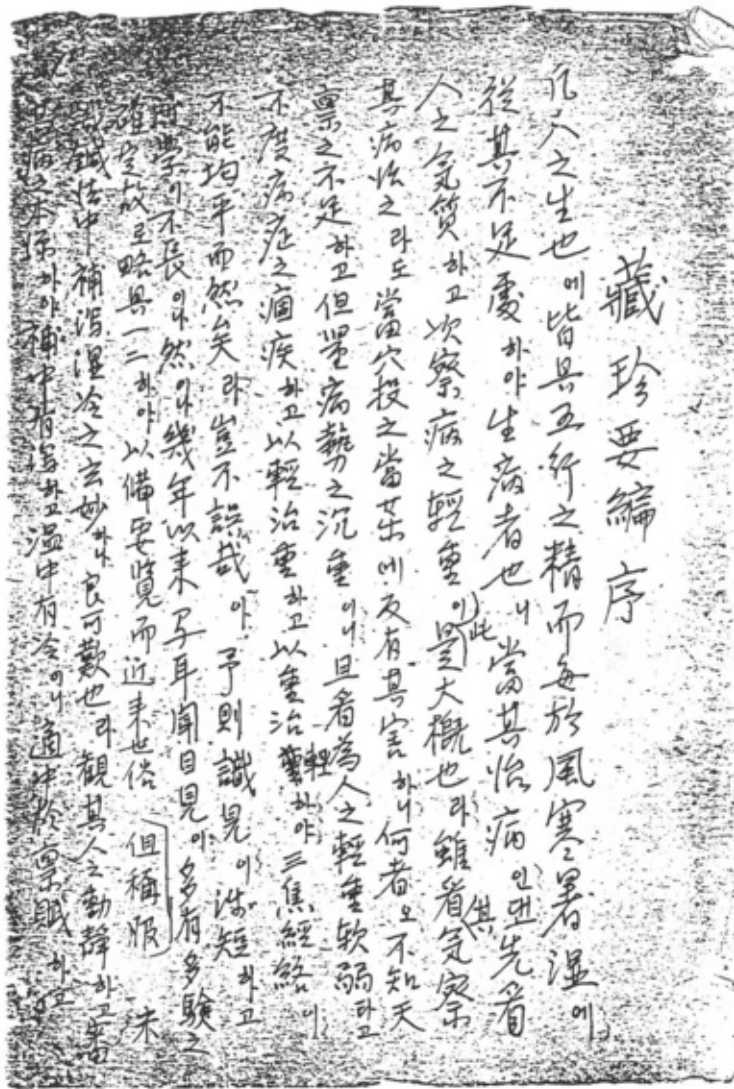 藏珍要編序
凡人之生也에皆具五行之精而每於風寒暑湿에
從其不足處하야生病者也니當其治病인댄先看其
人之気質하고次察病之輕重이此是大槪也라雖看気察
其病治之라도當穴投之當茱에反有其害하니何者오不知天
禀之不足하고但望病勢之沉重이니且看為人之輕重軟弱하고
不度病症之痼疾하고以輕治重하고以重治輕하야三焦經絡이
不能均平而然矣라豈不誤哉아予則識見이淺短하고
學이不長이나然이나幾年以来予耳聞目見이多有多驗之
確定故로略具一二하야以備要覧而近来世俗但稱服未
鍼法中補瀉温冷之玄妙하니良可歎也라觀其人之動聲하고
病之本源하야補中有瀉하고温中有冷이니適中於禀賦하고